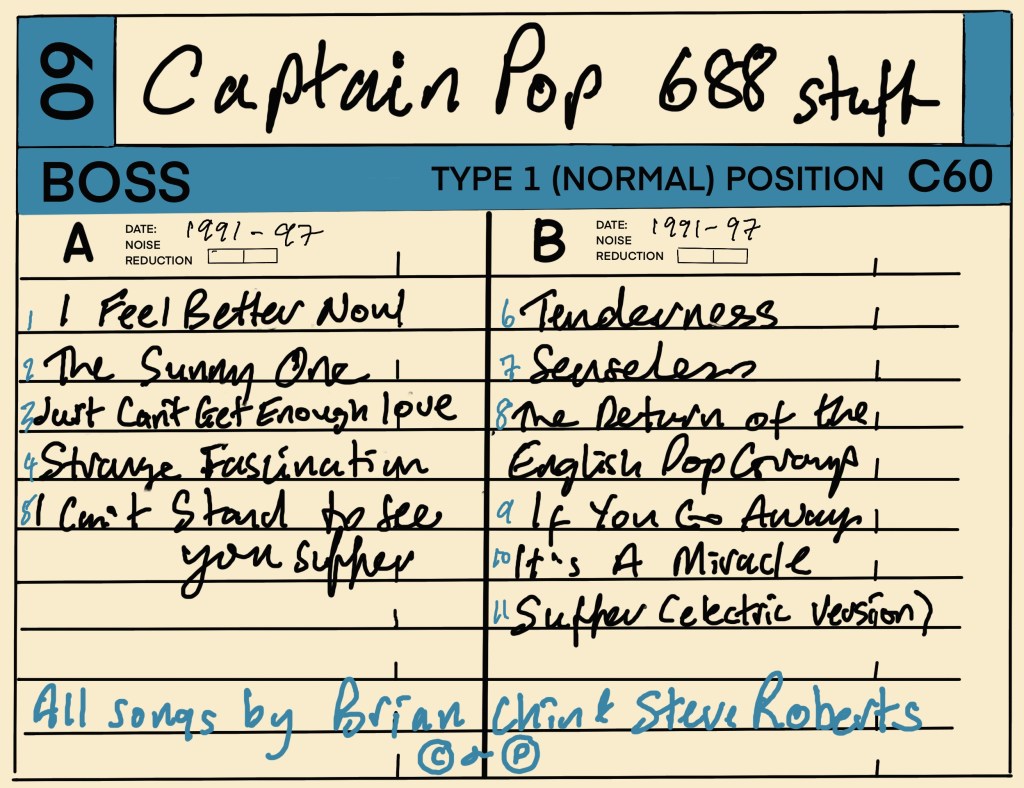 60
Captain Pop 688 stuff
BOSS TYPE 1 (NORMAL) POSITION C60
A
DATE: 1991-97
NOISE
REDUCTION
1 I Feel Better Now
2 The Sunny One
3 Just Can't Get Enough love
4 Strange Fascination
5 I Can't Stand to See
you Suffer
B
DATE: 1991-97
NOISE
REDUCTION
6 Tenderness
7 Senseless
8 The Return of the
English Pop
9 If You Go Away
10 It's A Miracle
11 Suffer (electric version)
All songs by Brian Chin & Steve Roberts
© & ℗